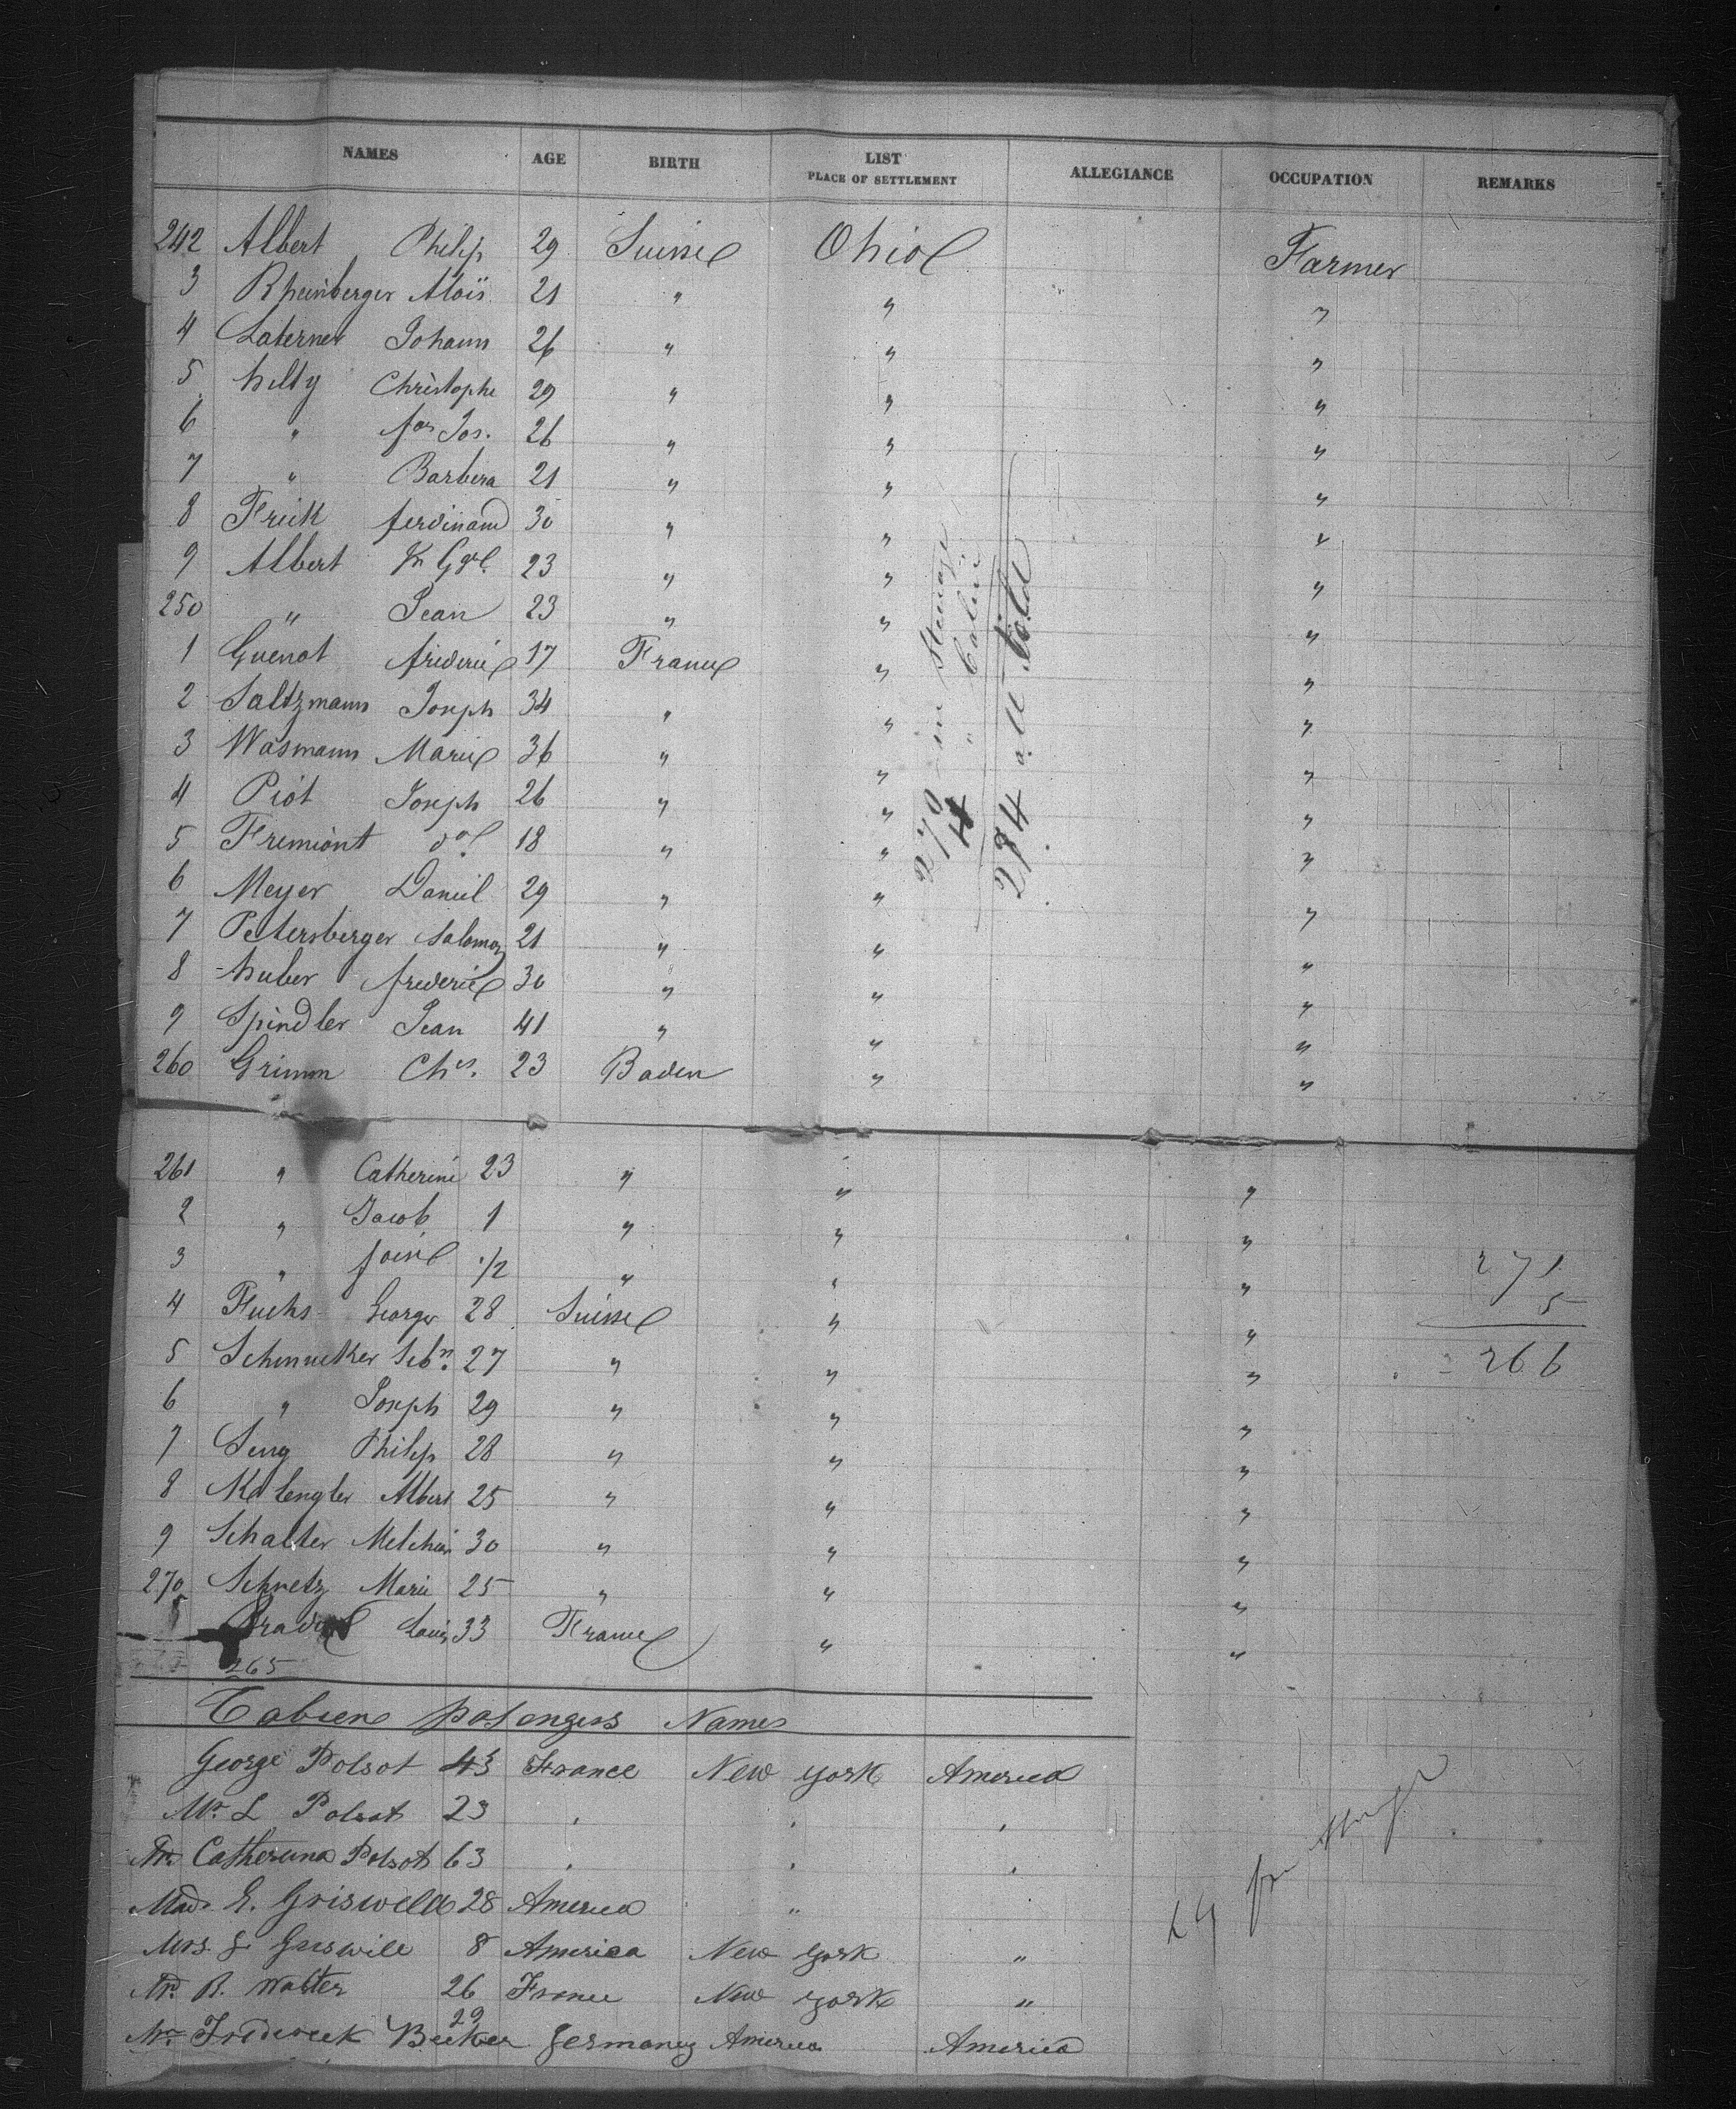 NAMES AGE BIRTH LIST PLACE OF SETTLEMENT ALLEGIANCE OCCUPATION REMARKS
242 Albert Philip 29 Suisse Ohio Farmer
3 Rheinberger Aloïs 21 " " "
4 Laterner Johann 26 " " "
5 hilty Christophe 29 " " "
6 " Jos. 26 " " "
7 " Barbera 21 " " "
8 Frick ferdinand 30 " " "
9 Albert 23 " " "
250 " Jean 23 " " "
1 Guenot frederic 17 France " "
2 Saltzmann Joseph 34 " " "
3 Wasmann Marie 36 " " "
4 Piot Joseph 26 " " "
5 Fremiont do 18 " " "
6 Meyer Daniel 29 " " "
7 Petersberger Salomon 21 " " "
8 huber frederic 30 " " "
9 Spindler Jean 41 " " "
260 Grimm Chs. 23 Baden " "
270 in Steerage
14 " Cabin
284 all told
261 " Catherine 23 " " "
2 " Jacob 1 " " "
3 " 1/2 " " "
4 Fuchs George 28 Suisse " "
5 Schmucker Sebn. 27 " " "
6 " Joseph 29 " " "
7 Seng Philip 28 " " "
8 Albert 25 " " "
9 Schalter Melchior 30 " " "
270 Schuetz Marie 25 " " "
Louis 33 France " "
265
271
5
266
Cabien pasengers Names
George Polsot 43 France New york America
Mr. L Polsot 23 " " "
Catheruna Polsot 63 " " "
Mad. E. Griswella 28 America "
Mrs. Griswill 8 America New york "
R. Walter 26 France New york "
Mr. Frederick Becker 29 Germany America America